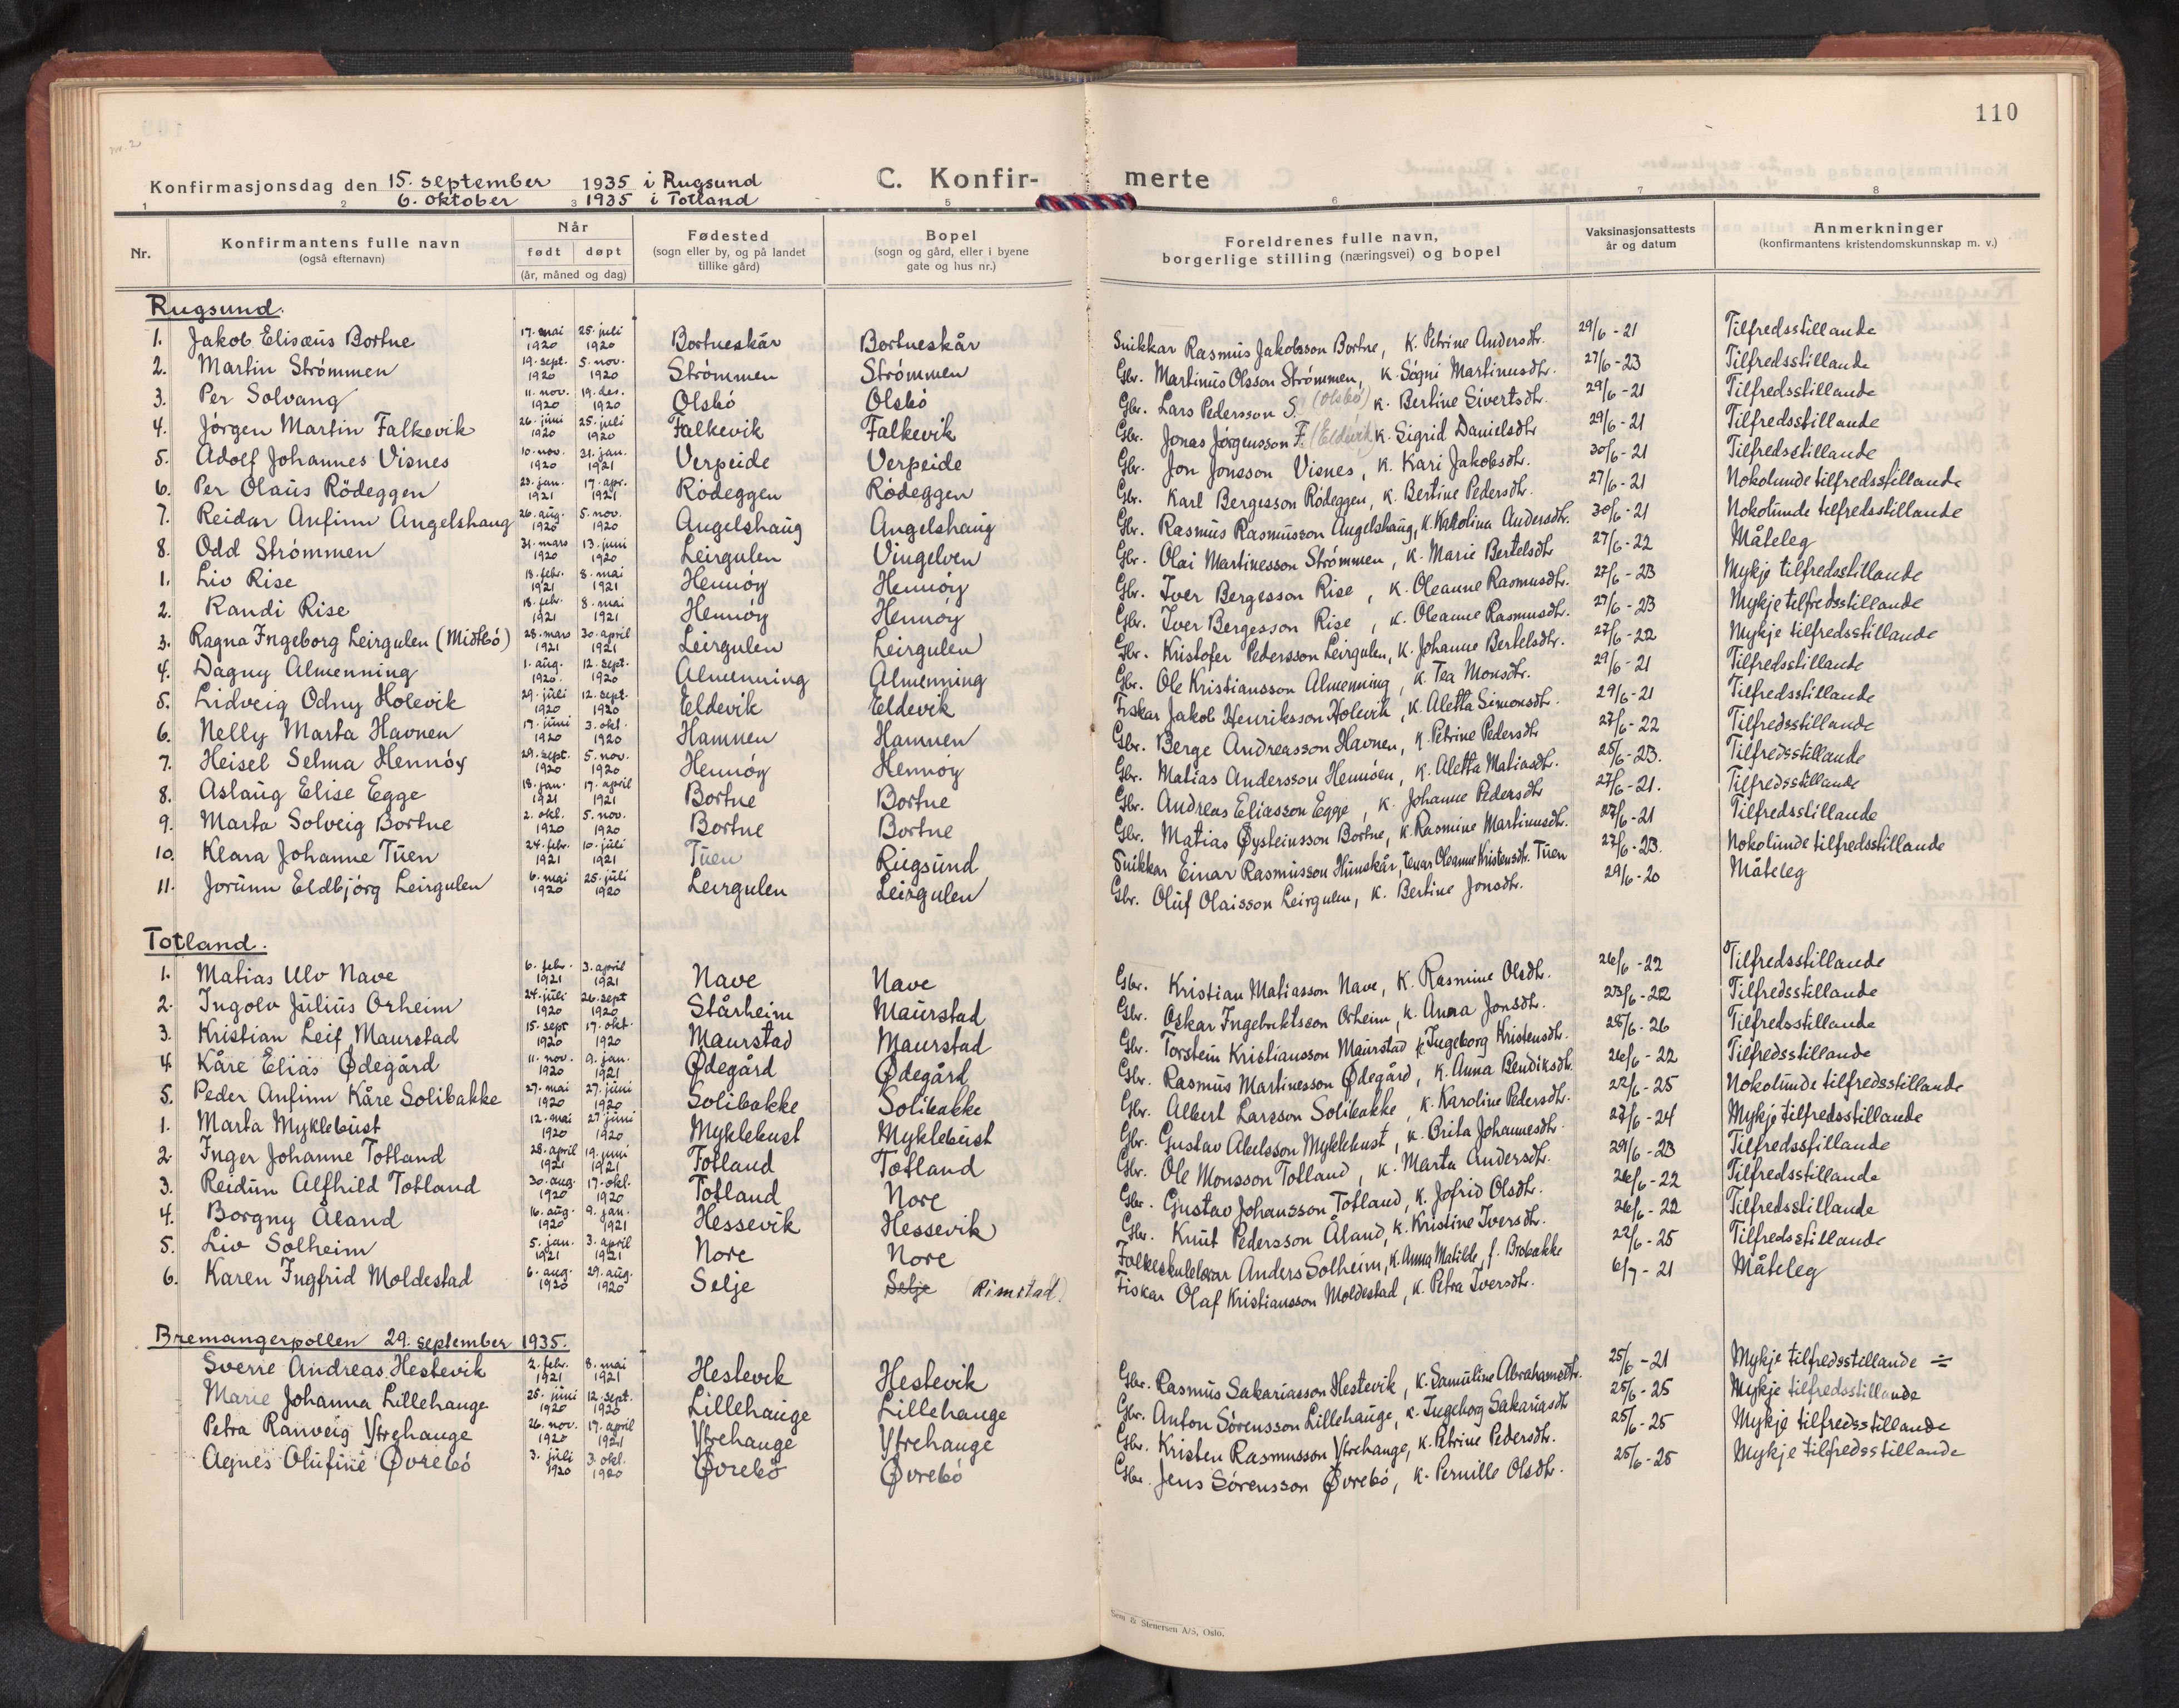 110
Konfirmasjonsdag den 15. september 1935 i Rugsund C. Konfir- merte
6. oktober 1935 i Totland
1 2 3 5 6 7 8
Nr. Konfirmantens fulle navn (også efternavn) Når født døpt (år, måned og dag) Fødested (sogn eller by, og på landet tillike gård) Bopel (sogn og gård, eller i byene gate og hus nr.) Foreldrenes fulle navn, borgerlige stilling (næringsvei) og bopel Vaksinasjonsattests år og datum Anmerkninger (konfirmantens kristendomskunnskap m. v.)
Rugsund.
1. Jakob Elisæus Bortne 17. mai 1920 25. juli 1920 Bortneskår Bortneskår Snikkar Rasmus Jakobsson Bortne, K. Petrine Andersdtr. 29/6-21 Tilfredsstillande
2. Martin Strömmen 19. sept. 1920 5. nov. 1920 Strömmen Strömmen Gbr. Martinus Olsson Strömmen, K. Sögni Martinusdtr. 27/6-23 Tilfredsstillande
3. Per Solvang 11. nov. 1920 19. des. 1920 Olsbö Olsbö Gbr. Lars Pedersson S. (Olsbö) K. Bertine Sivertsdtr. 29/6-21 Tilfredsstillande
4. Jörgen Martin Falkevik 26. juni 1920 25. juli 1920 Falkevik Falkevik Gbr. Jonas Jørgensson F. (Eldevik) K. Sigrid Danielsdtr 29/6-21 Tilfredsstillande
5. Adolf Johannes Visnes 10. nov. 1920 21. jan. 1921 Verpeide Verpeide Gbr. Jon Jonsson Visnes, K. Kari Jakobsdtr. 30/6-21 Tilfredsstillande
6. Per Olaus Rödeggen 23. jan. 1921 17. apr. 1921 Rödeggen Rödeggen Gbr. Karl Bergesson Rödeggen, K. Bertine Pedersdtr. 27/6-21 Nokolunde tilfredsstillande
7. Reidar Anfinn Angelshaug 26. aug. 1920 5. nov. 1920 Angelshaug Angelshaug Gbr. Rasmus Rasmusson Angelshaug, K. Karolina Andersdtr. 30/6-21 Nokolunde tilfredsstillande
8. Odd Strömmen 31. mars 1920 13. juni 1920 Leirgulen Vingelven Gbr. Olai Martinesson Strömmen, K. Marie Bertelsdtr 27/6-22 Måteleg
1. Liv Rise 18. febr. 1921 8. mai 1921 Hennöy Hennöy Gbr. Iver Bergesson Rise, K. Oleanne Rasmusdtr. 27/6-23 Mykje tilfredsstillande
2. Randi Rise 18. febr. 1921 8. mai 1921 Hennöy Hennöy Gbr. Iver Bergesson Rise, K. Oleanne Rasmusdtr. 27/6-23 Mykje tilfredsstillande
3. Ragna Ingeborg Leirgulen (Midtbö) 28. mars 1921 30. april 1921 Leirgulen Leirgulen Gbr. Kristofer Pedersson Leirgulen, K. Johanne Bertelsdtr. 27/6-22 Mykje tilfredsstillande
4. Dagny Almenning 1. aug. 1920. 12. sept. 1920 Almenning Almenning Gbr. Ole Kristiansson Almenning, K. Tea Monsdtr. 29/6-21 Tilfredsstillande
5. Lidveig Odny Holevik 29. juli 1920 12. sept. 1920 Eldevik Eldevik Fiskar Jakob Henriksson Holevik, K. Aletta Simonsdtr. 29/6-21 Tilfredsstillande
6. Nelly Marta Havnen 17. juni 1920 3. okt. 1920 Hamnen Hamnen Gbr. Berge Andreasson Havnen, K. Petrine Pedersdtr 27/6-22 Tilfredsstillande
7. Heisel Selma Hennöy 29. sept. 1920 5. nov. 1920 Hennöy Hennöy Gbr. Matias Andersson Hennöen, K. Aletta Matiasdtr. 25/6-23. Tilfredsstillande
8. Aslaug Elise Egge 18. jan. 1921 17. april 1921 Bortne Bortne Gbr. Andreas Eliasson Egge, K. Johanne Pedersdtr 27/6-21. Tilfredsstillande
9. Marta Solveig Bortne 2. okt. 1920 5. nov. 1920 Bortne Bortne Gbr. Matias Øysteinsson Bortne, K. Rasmine Martinusdtr. 27/6-21 Tilfredsstillande
10. Klara Johanne Tuen 24. febr. 1921 10. juli 1921 Tuen Rugsund Snikkar Einar Rasmusson Hunskår, tenar Oleanne Kristensdtr. Tuen 27/6-23. Nokolunde tilfredsstillande
11. Jorunn Eldbjörg Leirgulen 6. mai 1920 25. juli 1920 Leirgulen Leirgulen Gbr. Oluf Olaisson Leirgulen, K. Bertine Jonsdtr. 29/6-20 Måteleg
Totland.
1. Matias Ulv Nave 6. febr. 1921 3. april 1921 Nave Nave Gbr. Kristian Matiasson Nave, K. Rasmine Olsdtr. 26/6-22 Tilfredsstillande
2. Ingolv Julius Orheim 24. juli 1920 26. sept 1920 Stårheim Maurstad Gbr. Oskar Ingebriktsson Orheim, K. Anna Jonsdtr. 23/6-22 Tilfredsstillande
3. Kristian Leif Maurstad 15. sept 1920 17. okt. 1920 Maurstad Maurstad Gbr. Torstein Kristiansson Maurstad K. Ingeborg Kristensdtr. 28/6-26 Tilfredsstillande
4 Kåre Elias Ødegård 11. nov. 1920 9. jan. 1921 Ødegård Ødegård Gbr. Rasmus Martinesson Ødegård, K. Anna Bendiksdtr. 26/6-22 Tilfredsstillande
5. Peder Anfinn Kåre Solibakke 27. mai 1920 27. juni 1920 Solibakke Solibakke Gbr. Albert Larsson Solibakke, K. Karoline Pedersdtr. 22/6-25 Nokolunde tilfredsstillande
1. Marta Myklebust 12. mai 1920 27. juni 1920 Myklebust Myklebust Gbr. Gustav Abelsson Myklebust, K. Brita Johannesdtr. 27/6-24 Mykje tilfredsstillande
2. Inger Johanne Totland 28. april 1921 19. juni 1921 Totland Totland Gbr. Ole Monsson Totland, K. Marta Andersdtr. 29/6-23 Tilfredsstillande
3. Reidun Alfhild Totland 30. aug. 1920 17. okt. 1920 Totland Nore Gbr. Gustav Johansson Totland, K. Jofrid Olsdtr. 26/6-22 Tilfredsstillande
4. Borgny Åland 16. aug. 1920 9. jan. 1921 Hessevik Hessevik Gbr. Knut Pedersson Åland, K. Kristine Iversdtr. 26/6-22 Tilfredsstillande
5. Liv Solheim 5. jan. 1921 3. april 1921 Nore Nore Folkeskulelærar Anders Solheim, K. Anna Matilde, f. Brobakke 22/6-25 Tilfredsstillande
6. Karen Ingfrid Moldestad 6. aug. 1920 29. aug. 1920 Selje Selje (Rimstad) Fiskar Olaf Kristiansson Moldestad, K. Petra Iversdtr. 6/7-21 Måteleg
Bremangerpollen 29. september 1935.
Sverre Andreas Hestevik 2. febr. 1921 8. mai 1921 Hestevik Hestevik Gbr. Rasmus Sakariasson Hestevik, K. Samuline Abrahamsdtr. 25/6-21 Mykje tilfredsstillande ÷
Marie Johanna Lillehauge 25. juni 1920 12. sept. 1920 Lillehauge Lillehauge Gbr. Anton Sørensson Lillehauge, K. Ingeborg Sakariasdtr 25/6-25 Mykje tilfredsstillande
Petra Ranveig Ytrehauge 26. nov. 1920 17. april 1921 Ytrehauge Ytrehauge Gbr. Kristen Rasmusson Ytrehauge, K. Petrine Pedersdtr. 25/6-25 Mykje tilfredsstillande
Agnes Olufine Øvrebö 3. juli 1920 3. okt. 1920 Øvrebö Øvrebö Gbr. Jens Sörensson Øvrebö, K. Pernille Olsdtr. 25/6-25 Mykje tilfredsstillande
Sem & Stenersen A/S, Oslo.